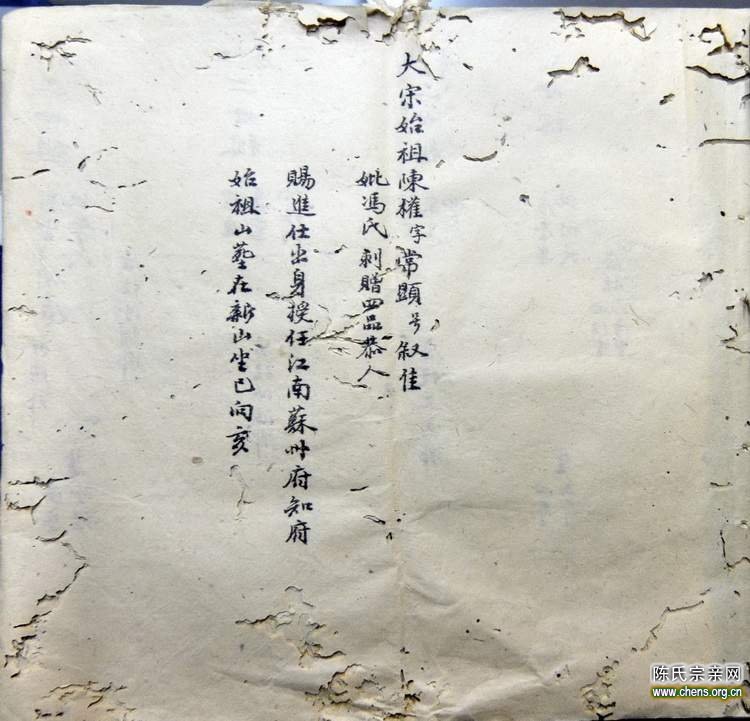 大宋始祖陳權字常顕号叙佳
妣馮氏刺贈四品恭人
賜進仕出身授任江南蘇州府知府
始祖山塟在新山坐巳向亥
陈氏宗亲网
www.chens.org.cn